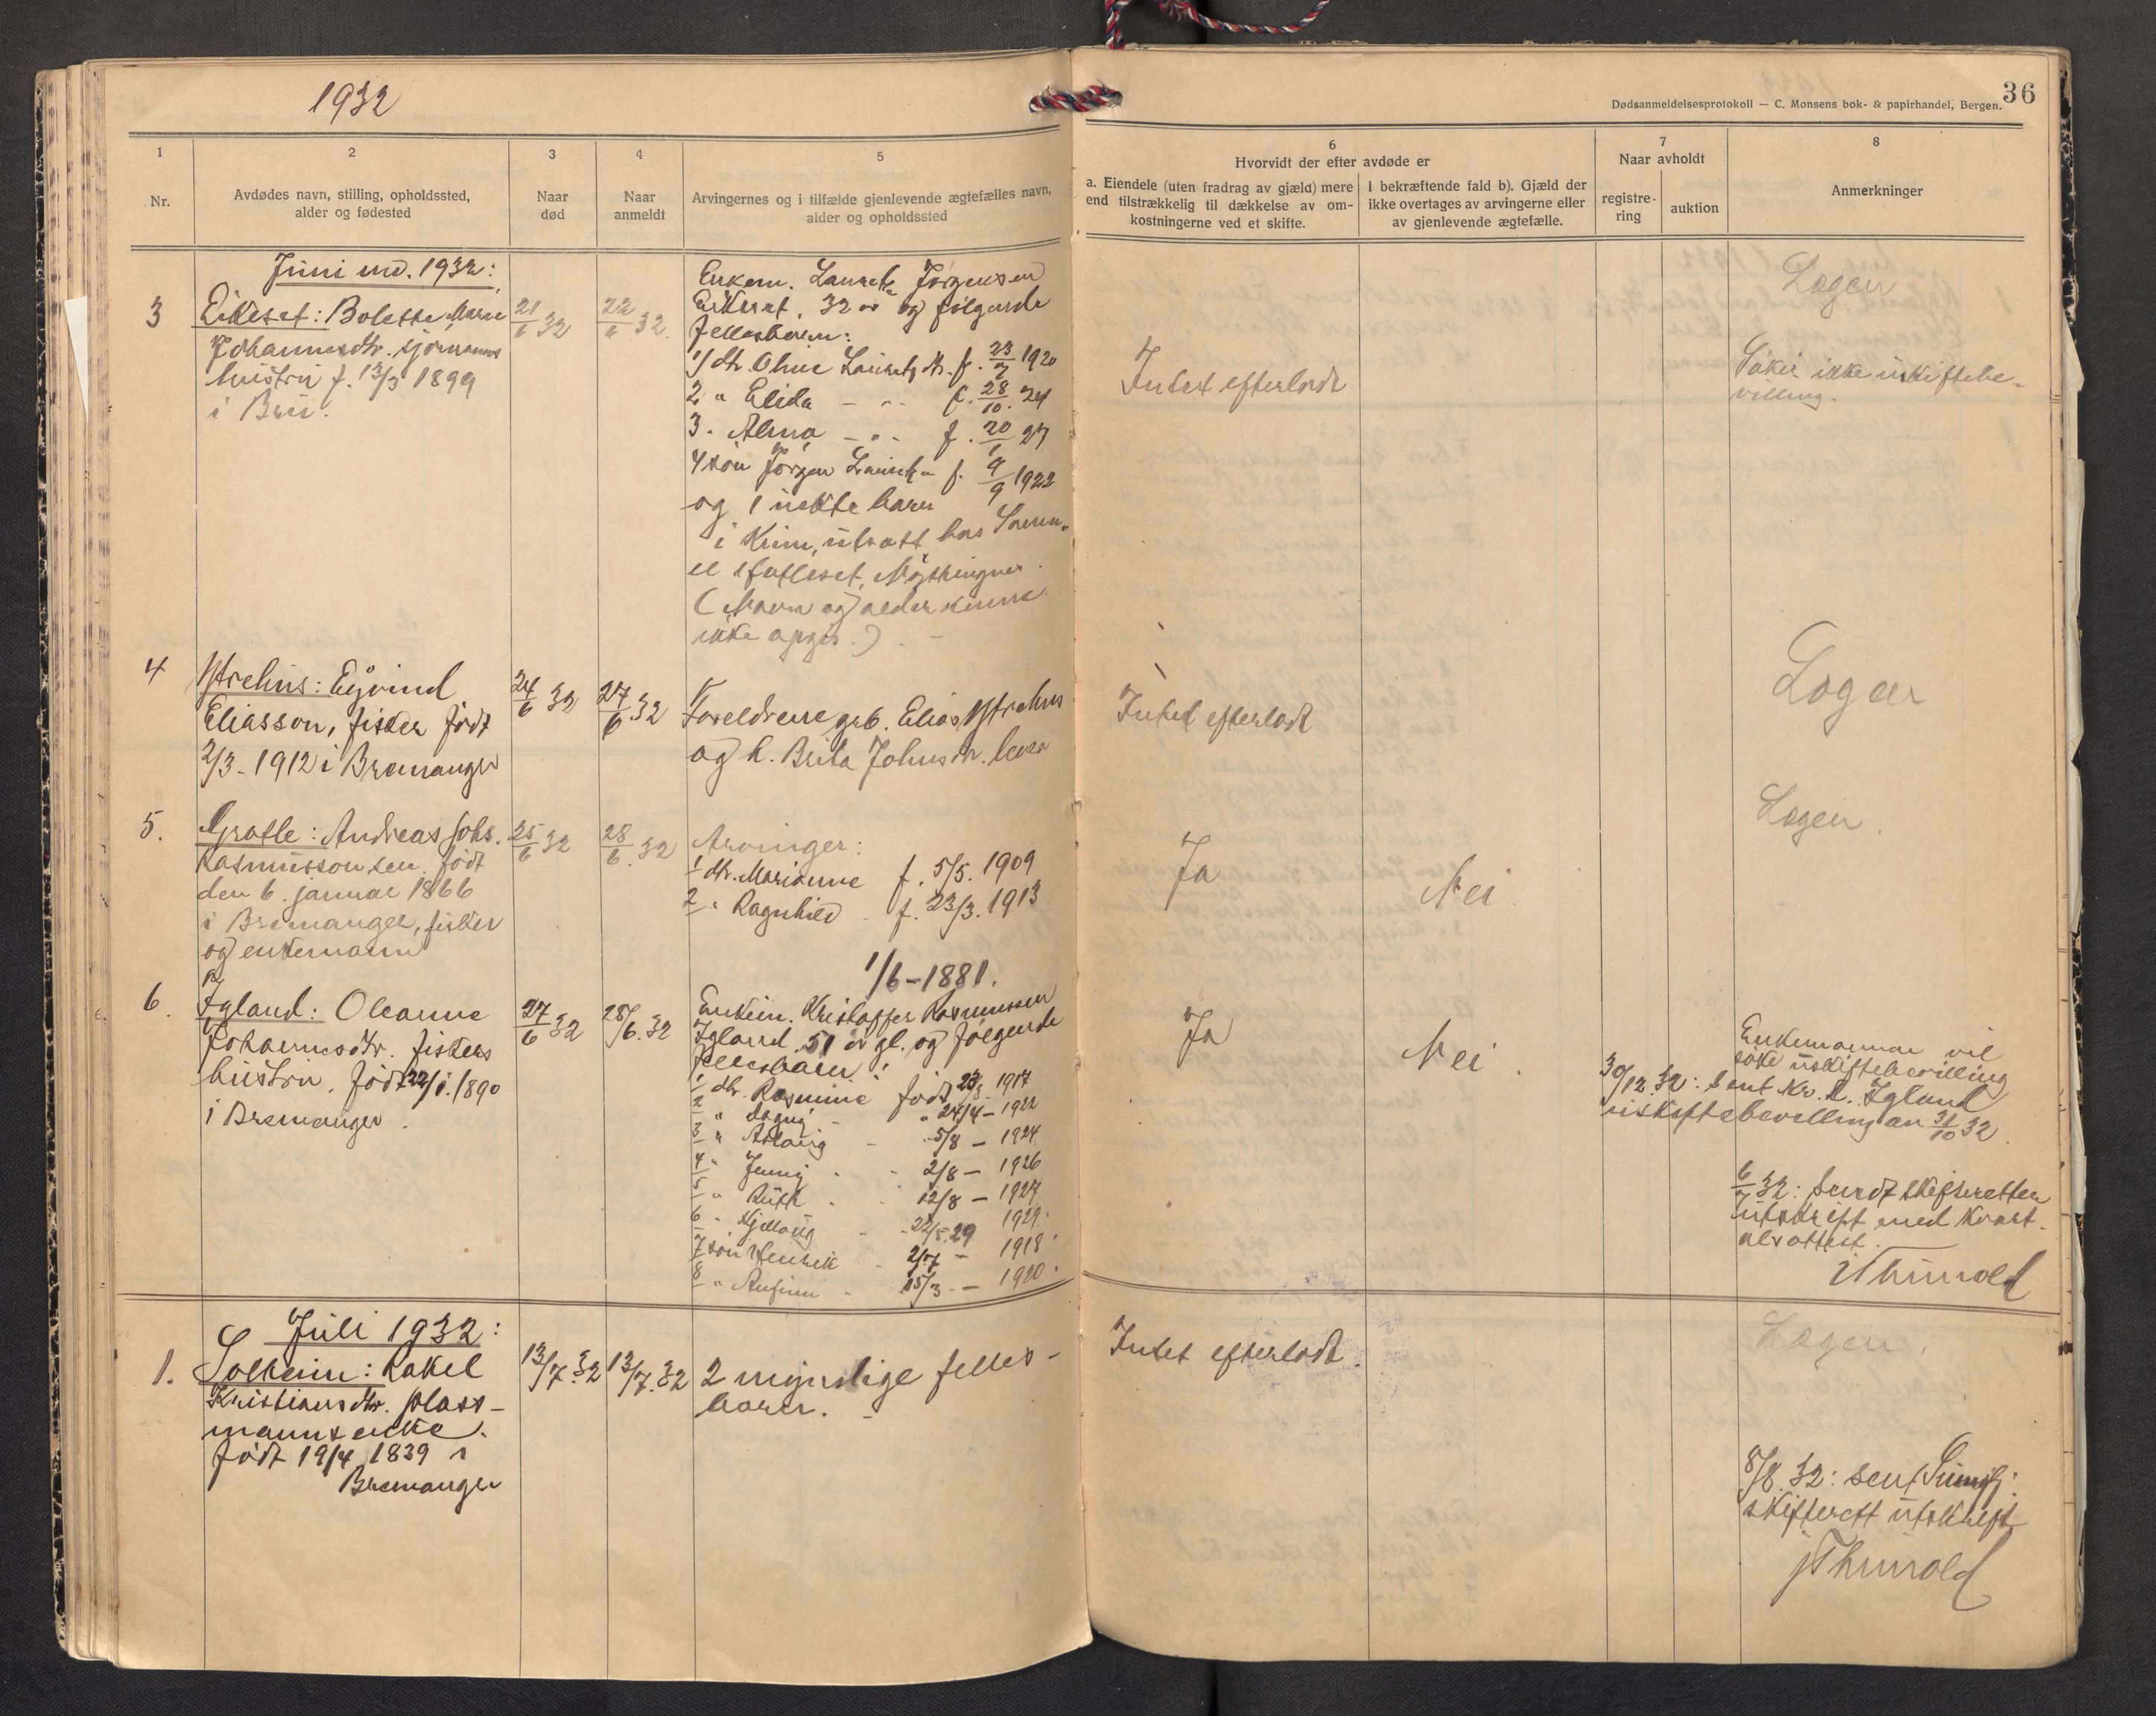 1932
36
Dødsanmeldelsesprotokoll — C. Monsens bok- & papirhandel, Bergen.
1
2
3
4
5
6
7
8
Nr.
Avdødes navn, stilling, opholdssted,
alder og fødested
Naar
død
Naar
anmeldt
Arvingernes og i tilfælde gjenlevende ægtefælles navn,
alder og opholdssted
Hvorvidt der efter avdøde er
a. Eiendele (uten fradrag av gjæld) mere
end tilstrækkelig til dækkelse av om-
kostningerne ved et skifte.
I bekræftende fald b). Gjæld der
ikke overtages av arvingerne eller
av gjenlevende ægtefælle.
Naar avholdt
registre-
ring
auktion
Anmerkninger
Juni md. 1932:
3
Eikeset: Bolette Marie
Johannesdtr. sjømanns
hustru f. 13/3 1899
i Bru.
21/6 32
22/6 32.
Enkem. Lauritz Jørgensen
Eikeset, 32 år og følgende
fellesbarn:
1/ dtr. Oline Lauritz dtr. f. 23/7 1920
2 " Elida — " f. 28/10. 24
3 " Alma — " f. 20/1 27
4 søn Jørgen Lauritz " f. 9/9 1922
og 1 uekte barn
i Kinn, utsatt hos
(Navn og alder kunne
ikke opgis.)
Intet efterladt
Søker ikke uskiftebe-
villing.
4
Ystrehus: Eyvind
Eliasson, fisker født
2/3 - 1912 i Bremanger
24/6 32
27/6 32
Foreldrene grb. Elias Ystrehus
og h. Brita Johns dtr. lever
Intet efterladt
5.
Grotle: Andreas Johs.
Rasmusson sen. født
den 6. januar 1866
i Bremanger, fisker
og enkemann
25/6 32
28/6. 32
Arvinger:
1 dtr. Marianne f. 5/5. 1909
2 " Ragnhild - f. 23/3. 1913
Ja
Nei.
1/6 - 1881.
6.
Igland: Oleanne
Johannesdtr. fiskers
hustru, født 22/1. 1890
i Bremanger.
27/6 32
28/6. 32
Enkem. Kristoffer Rasmussen
Igland 51 år gl. og følgende
fellesbarn:
1 dtr. Rasmine født 1917
2 " Dagny - " 24/4 - 1922
3 " Aslaug - " 5/8 - 1924
4 " Jenny - " 2/8 - 1926
5 " Ruth - " 12/8 - 1927
6 " Kjellaug - 22/5. 29 1929.
7 søn Henrik - 2/7 - 1918
8 " Anfinn - 15/3 - 1920.
Ja
Nei.
Enkemannen vil
søke uskiftebevilling
30/12. 32: Sent Kr. R. Igland
uskiftebevilling av 31/10 32.
6/7 32: Sendt skifteretten
utskrift med kvart-
alsattest.
Juli 1932:
1.
Solheim: Rakel
Kristiansdtr. plass-
manns enke.
født 19/4 1839 i
Bremanger
13/7. 32
13/7. 32
2 myndige felles-
barn.
Intet efterladt.
8/8. 32: sent Sunnfj.
skifterett utskrift